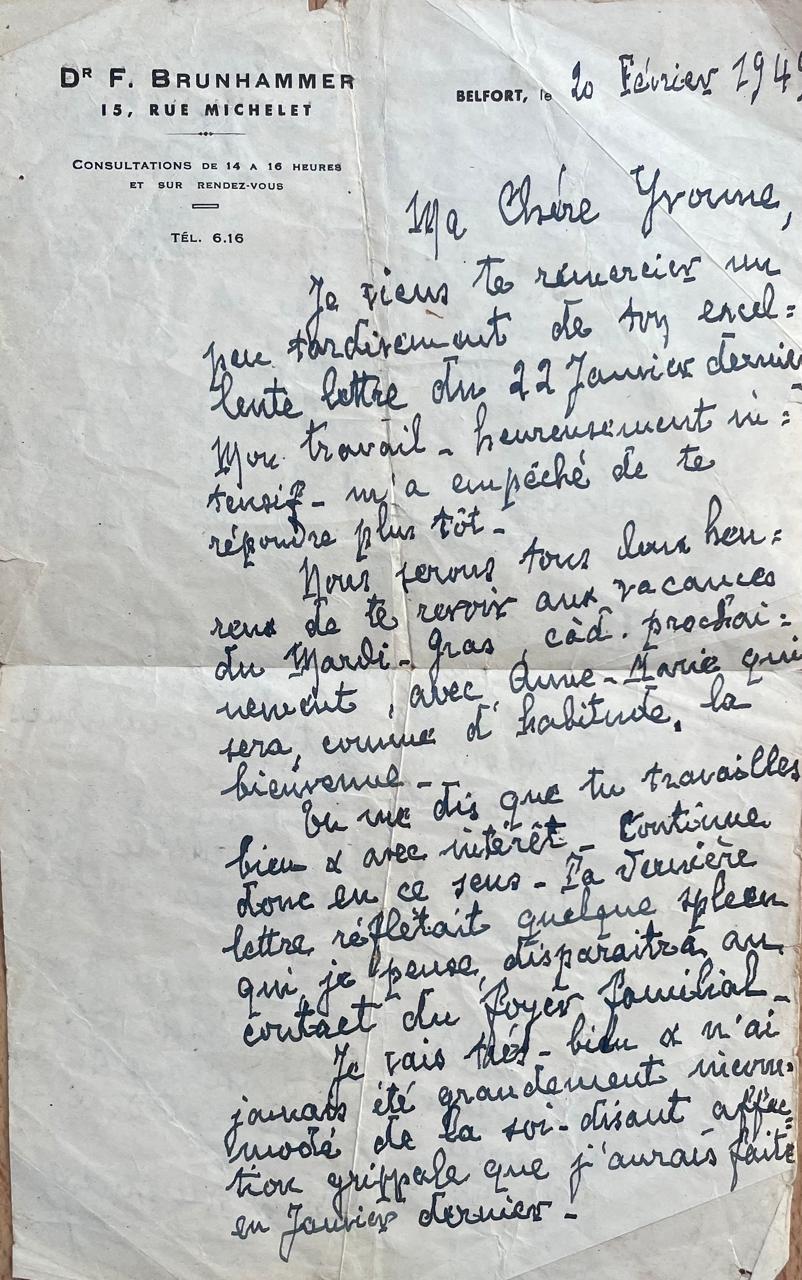 DR F. BRUNHAMMER
15, RUE MICHELET
CONSULTATIONS DE 14 A 16 HEURES
ET SUR RENDEZ-VOUS
TÉL. 6.16
BELFORT, le 20 Février 1949
Ma Chére Yvonne,
Je viens te remercier un
peu tardivement de ton excel=
lente lettre du 22 Janvier dernier
Mon travail - heureusement in=
tensif - m'a empéché de te
répondre plus tôt -
Nous serons tous deux heu=
reux de te revoir aux vacances
du Mardi-Gras, càd. prochai=
nement, avec Anne-Marie qui
sera, comme d'habitude, la
bienvenue -
Tu me dis que tu travailles
bien & avec intérêt - Continue
donc en ce sens - Ta dernière
lettre réflétait quelque spleen
qui, je pense, disparaitra au
contact du foyer familial -
Je vais très-bien & n'ai
jamais été grandement incom=
modé de la soi-disant affec=
tion grippale que j'aurais faite
en Janvier dernier -